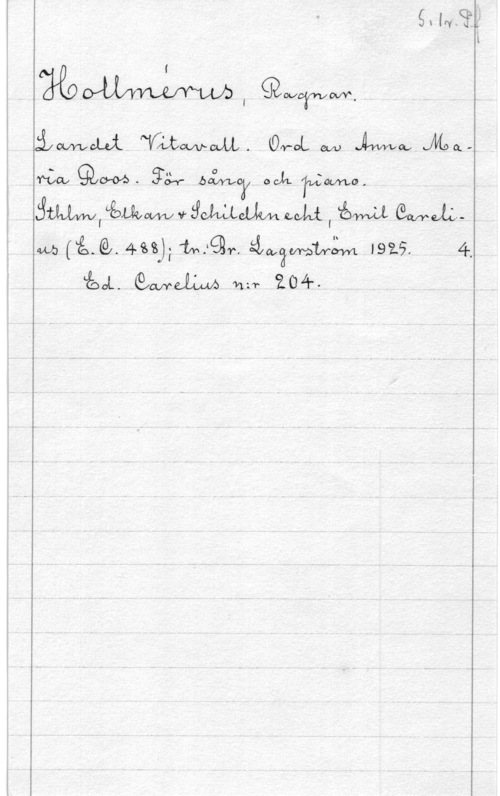 S. 1 v. Pf
Hollmérus, Ragnar.
Landet Vitavall. Ord av Anna Ma-
ria Roos. För sång och piano.
Sthlm, Elkan & Schildknecht, Emil Careli-
us (E.C. 488); tr.: Br. Lagerström 1925. 4.
Ed. Carelius n:r 204.